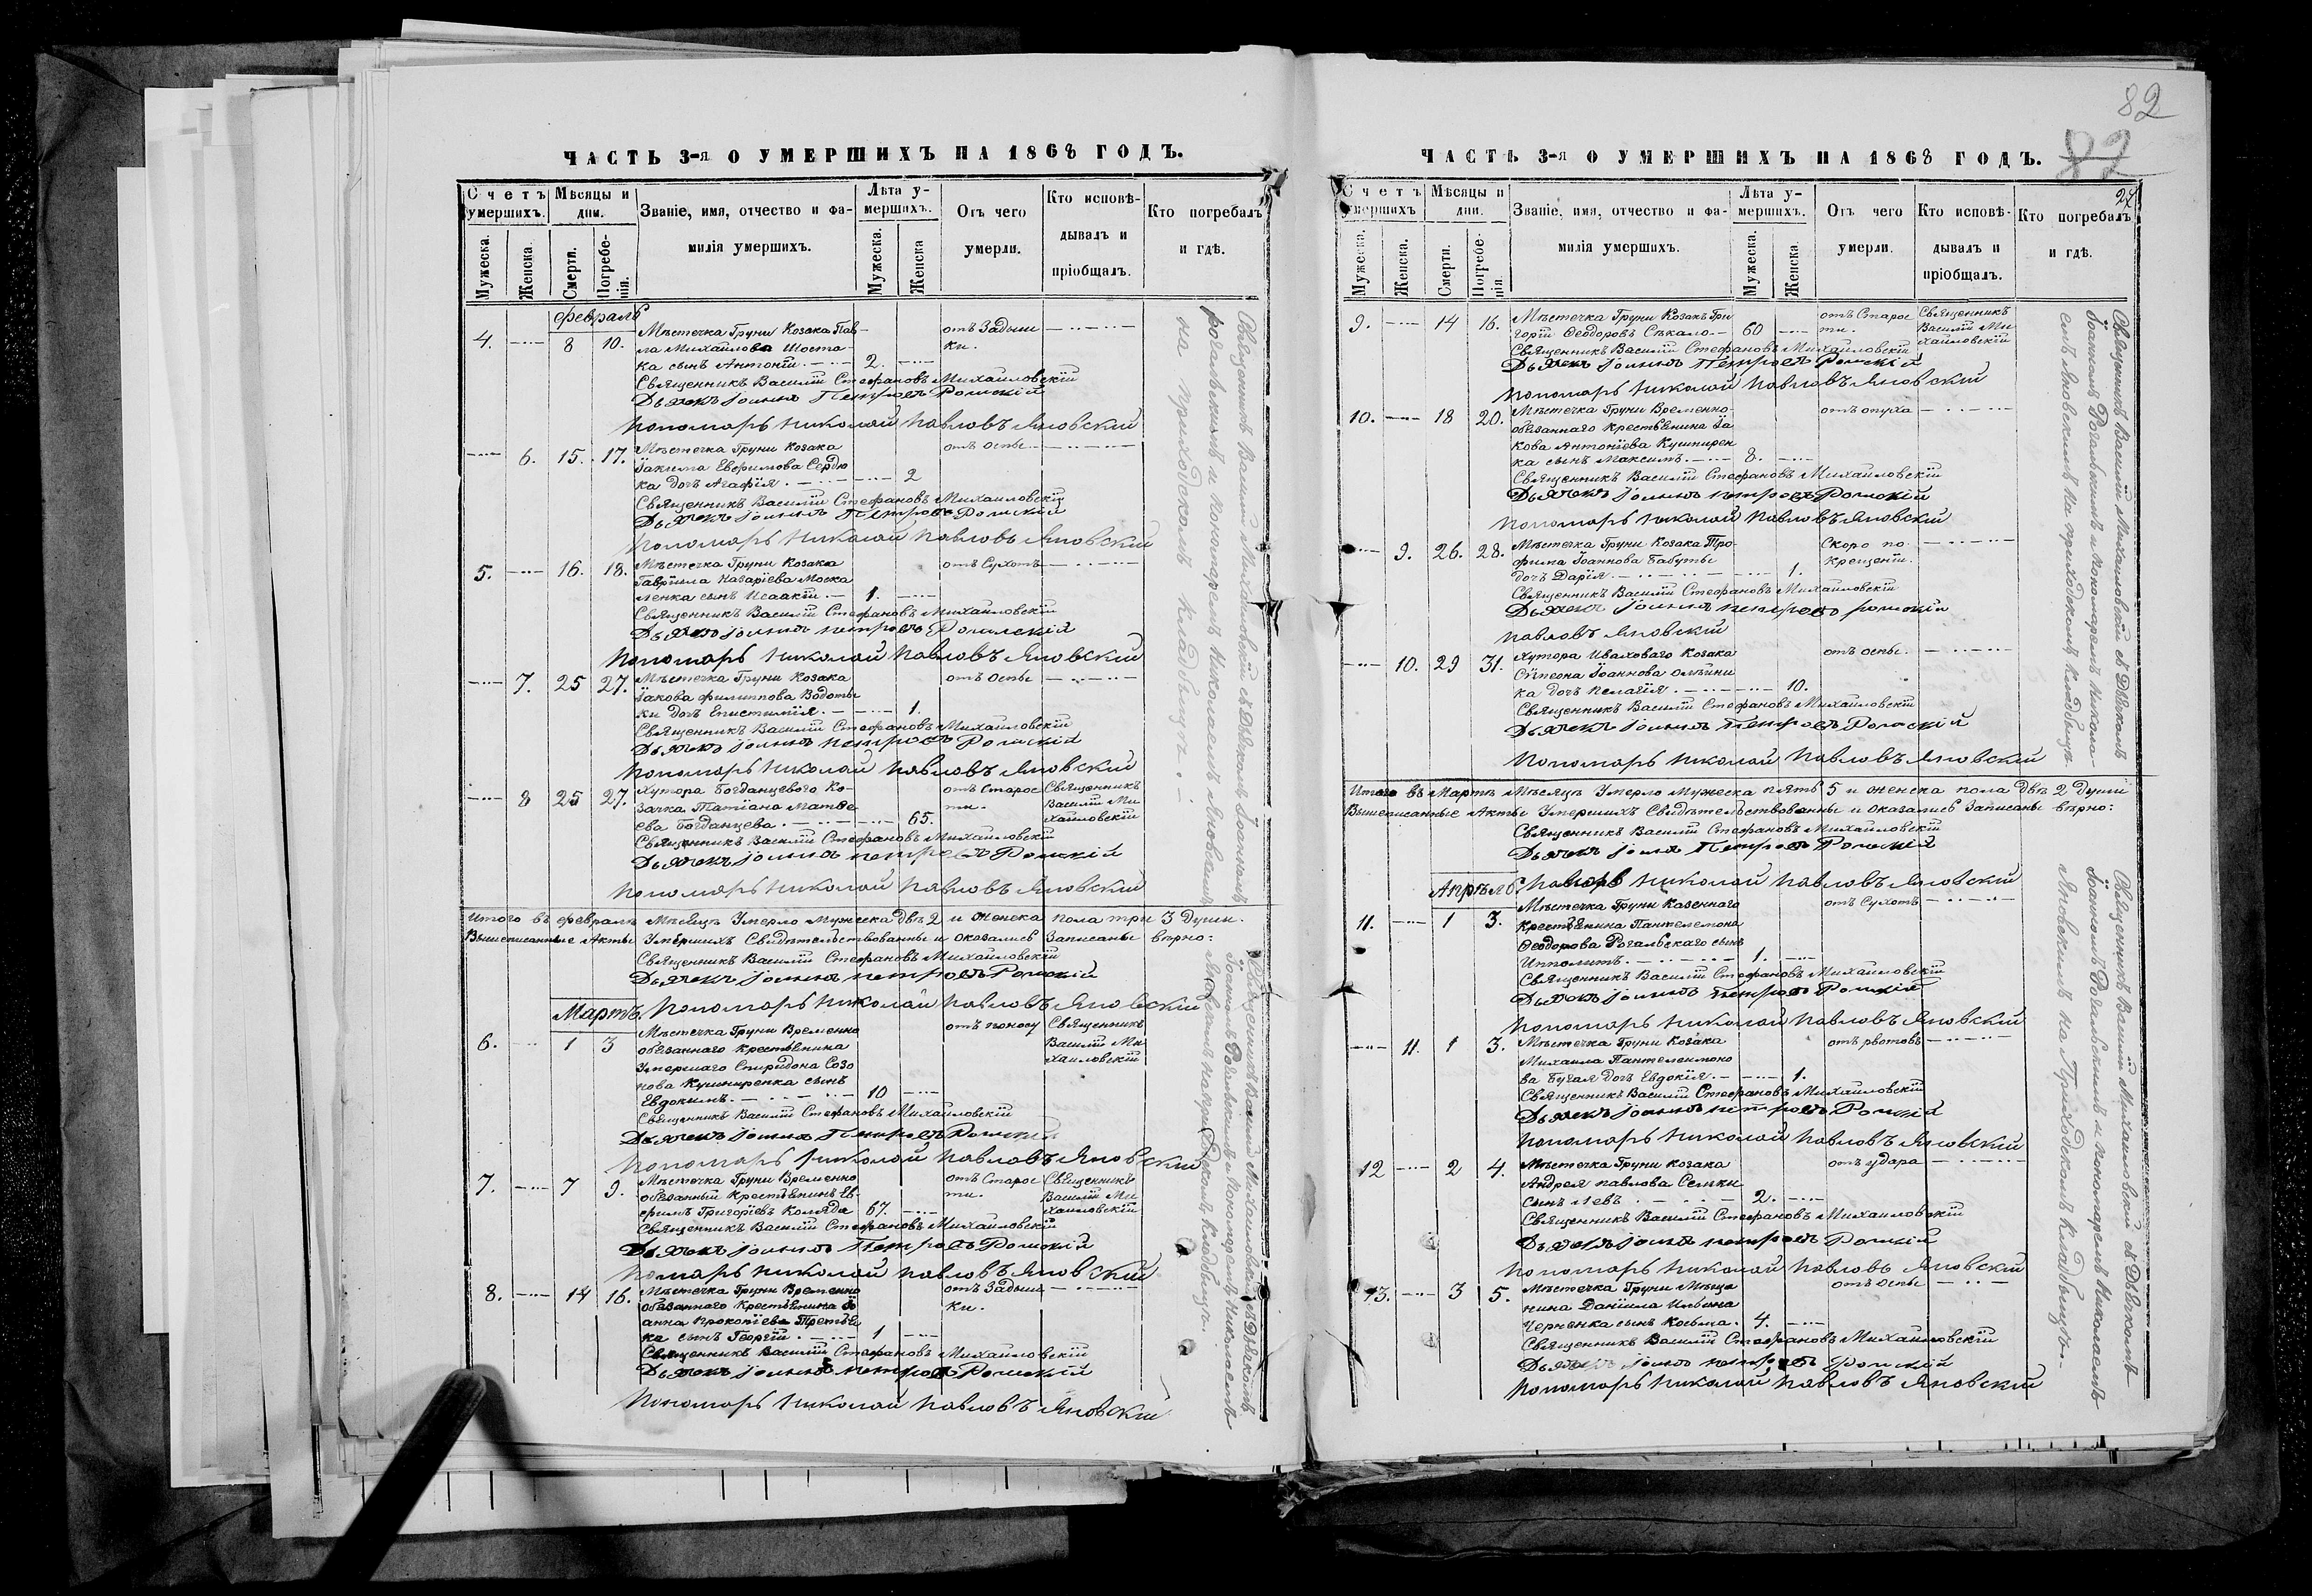 ЧАСТЬ 3-я О УМЕРШИХЪ НА 1868 ГОДЪ.
Счетъ умершихъ.
Мѣсяцы и дни.
Званіе, имя, отчество и фамилія умершихъ.
Лѣта умершихъ.
Отъ чего умерли.
Кто исповѣдывалъ и пріобщалъ.
Кто погребалъ и гдѣ.
Мужеска.
Женска.
Смерти.
Погребенія.
Мужеска.
Женска
февраль
4. 8 10. Мѣстечка Груни Козака Пав- отъ Задыш
ла Михайлова Шоста- ки.
ка сынъ Антоній. 2.
Священникъ Василій Стефановъ Михайловскій
Дьячекъ Іоаннъ Петровъ
Пономарь Николай Павловъ Яновскій
6. 15. 17. Мѣстечка Груни Козака отъ оспы
Іакима Евфимова Сердю
ка дочь Агафія. 2
Священникъ Василій Стефановъ Михайловскій
Дьячекъ Іоаннъ Петровъ
Пономарь Николай Павловъ Яновскій
5. 16. 18. Мѣстечка Груни Козака отъ Сухотъ
Гавріила Назаріева Моска
ленка сынъ Исаакій. 1.
Священникъ Василій Стефановъ Михайловскій
Дьячекъ Іоаннъ Петровъ
Пономарь Николай Павловъ Яновскій
7. 25 27. Мѣстечка Груни Козака отъ Оспы
Іакова филиппова Водоты
ки дочь Епистимія. 1.
Священникъ Василій Стефановъ Михайловскій
Дьячекъ Іоаннъ Петровъ
Пономарь Николай Павловъ Яновскій
8 25 27. Хутора Богданцевого Ко- отъ Старос Священникъ
зачка Татіана Матве ти. Василій Ми
ева Богданцева. 65. хайловскій
Священникъ Василій Стефановъ Михайловскій
Дьячекъ Іоаннъ Петровъ
Пономарь Николай Павловъ Яновскій
Итого въ февралѣ Мѣсяцѣ Умерло Мужеска двѣ 2 и Женска пола три 3 Души.
Вышеписанные Акты Умершихъ Свидѣтельствованны и оказались Записаны вѣрно:
Священникъ Василій Стефановъ Михайловскій
Дьячекъ Іоаннъ Петровъ
Пономарь Николай Павловъ Яновскій
Мартъ.
6. 1 3 Мѣстечка Груни Временно отъ поносу Священникъ
обязаннаго крестьянина Василій Ми
Умершаго Спиридона Созо хайловскій
нова Кушниренка сынъ
Евдокимъ. 10
Священникъ Василій Стефановъ Михайловскій
Дьячекъ Іоаннъ Петровъ
Пономарь Николай Павловъ Яновскій
7. 7 9. Мѣстечка Груни Временно отъ Старос Священникъ
обязанный крестьянинъ Ев- ти. Василій Ми
фимъ Григоріевъ Коляда 67. хайловскій
Священникъ Василій Стефановъ Михайловскій
Дьячекъ Іоаннъ Петровъ
Пономарь Николай Павловъ Яновскій
8. 14 16. Мѣстечка Груни Временно отъ Задыш
обязаннаго Крестьянина Іо ки.
анна Прокопіева Третья
ка сынъ Георгій. 1
Священникъ Василій Стефановъ Михайловскій
Дьячекъ Іоаннъ Петровъ
Пономарь Николай Павловъ Яновскій
Священникъ Василій Михайловскій съ Дьячкомъ Іоанномъ
и пономаремъ Николаемъ Яновскимъ
на приходскомъ кладбищѣ.
82
ЧАСТЬ 3-я О УМЕРШИХЪ НА 1868 ГОДЪ.
27
Счетъ умершихъ
Мѣсяцы и дни.
Званіе, имя, отчество и фамилія умершихъ.
Лѣта умершихъ.
Отъ чего умерли.
Кто исповѣдывалъ и пріобщалъ.
Кто погребалъ и гдѣ.
Мужеска.
Женска.
Смерти.
Погребенія.
Мужеска.
Женска.
9. 14 16. Мѣстечка Груни Козакъ Гри отъ Старос Священникъ
горій Ѳеодоровъ Сѣкало 60 ти. Василій Ми
хайловскій
Священникъ Василій Стефановъ Михайловскій
Дьячекъ Іоаннъ Петровъ
Пономарь Николай Павловъ Яновскій
10. 18 20. Мѣстечка Груни Временно- отъ опуха
обязаннаго Крестьянина Іа
кова Антоніева Кушнирен
ка сынъ Максимъ. 8.
Священникъ Василій Стефановъ Михайловскій
Дьячекъ Іоаннъ Петровъ
Пономарь Николай Павловъ Яновскій
9. 26. 28. Мѣстечка Груни Козака Тро- Скоро по
фима Іоаннова Бабуты крещеніи.
дочь Дарія. 1.
Священникъ Василій Стефановъ Михайловскій
Дьячекъ Іоаннъ Петровъ
Павловъ Яновскій
10. 29 31. Хутора Иваховаго Козака отъ оспы.
Сѵмеона Іоаннова Олѣйни
ка дочь Пелагія. 10.
Священникъ Василій Стефановъ Михайловскій
Дьячекъ Іоаннъ Петровъ
Пономарь Николай Павловъ Яновскій
Итого въ Мартѣ Мѣсяцѣ Умерло Мужеска пять 5 и женска пола двѣ 2 Души
Вышеписанные Акты Умершихъ Свидѣтельствованны и оказались Записаны вѣрно:
Священникъ Василій Стефановъ Михайловскій
Дьячекъ Петровъ
Николай Павловъ Яновскій
Апрѣль
11. 1 3. Мѣстечка Груни Казеннаго отъ Сухотъ
Крестьянина Пантелемона
Ѳеодорова Рогальскаго сынъ
Ипполитъ. 1.
Священникъ Василій Стефановъ Михайловскій
Дьячекъ Іоаннъ Петровъ
Пономарь Николай Павловъ Яновскій
11. 1 3. Мѣстечка Груни Козака отъ рвотовъ
Михаила Пантелеимоно
ва Бугая дочь Евдокія. 1.
Священникъ Василій Стефановъ Михайловскій
Дьячекъ Іоаннъ Петровъ
Пономарь Николай Павловъ Яновскій
12 2 4. Мѣстечка Груни козака отъ удара
Андрея павлова Семки
сынъ Левъ. 2.
Священникъ Василій Стефановъ Михайловскій
Дьячекъ Петровъ
Пономарь Николай Павловъ Яновскій
13. 3 5. Мѣстечка Груни Мѣща отъ Оспы
нина Даніила Ильина
Черненка сынъ Косьма. 4.
Священникъ Василій Стефановъ Михайловскій
Дьячекъ Петровъ
Пономарь Николай Павловъ Яновскій
Священникъ Василій Михайловскій съ Дьячкомъ
Іоанномъ и пономаремъ Никола-
емъ Яновскимъ на приходскомъ кладбищѣ
Священникъ Василій Михайловскій съ Дьячкомъ
Іоанномъ и пономаремъ Николаемъ
Яновскимъ на Приходскомъ Кладбищѣ.